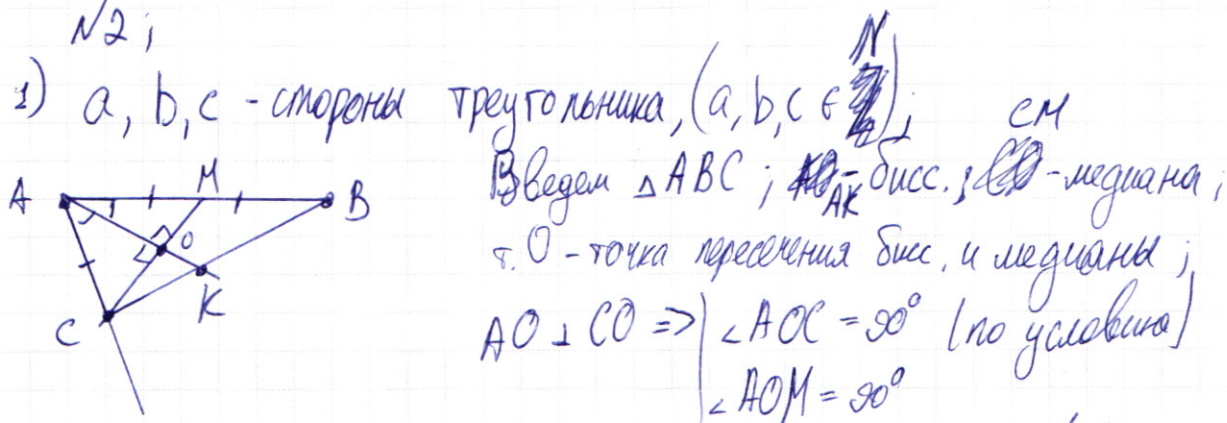 N2;
1) a, b, c - стороны треугольника, (a, b, c ∈ N);
Введем △ABC; AK - бисс.; CM - медиана;
т. O - точка пересечения бисс. и медианы;
AO ⊥ CO => ∠AOC = 90° (по условию)
∠AOM = 90°
A M B
O
K
C